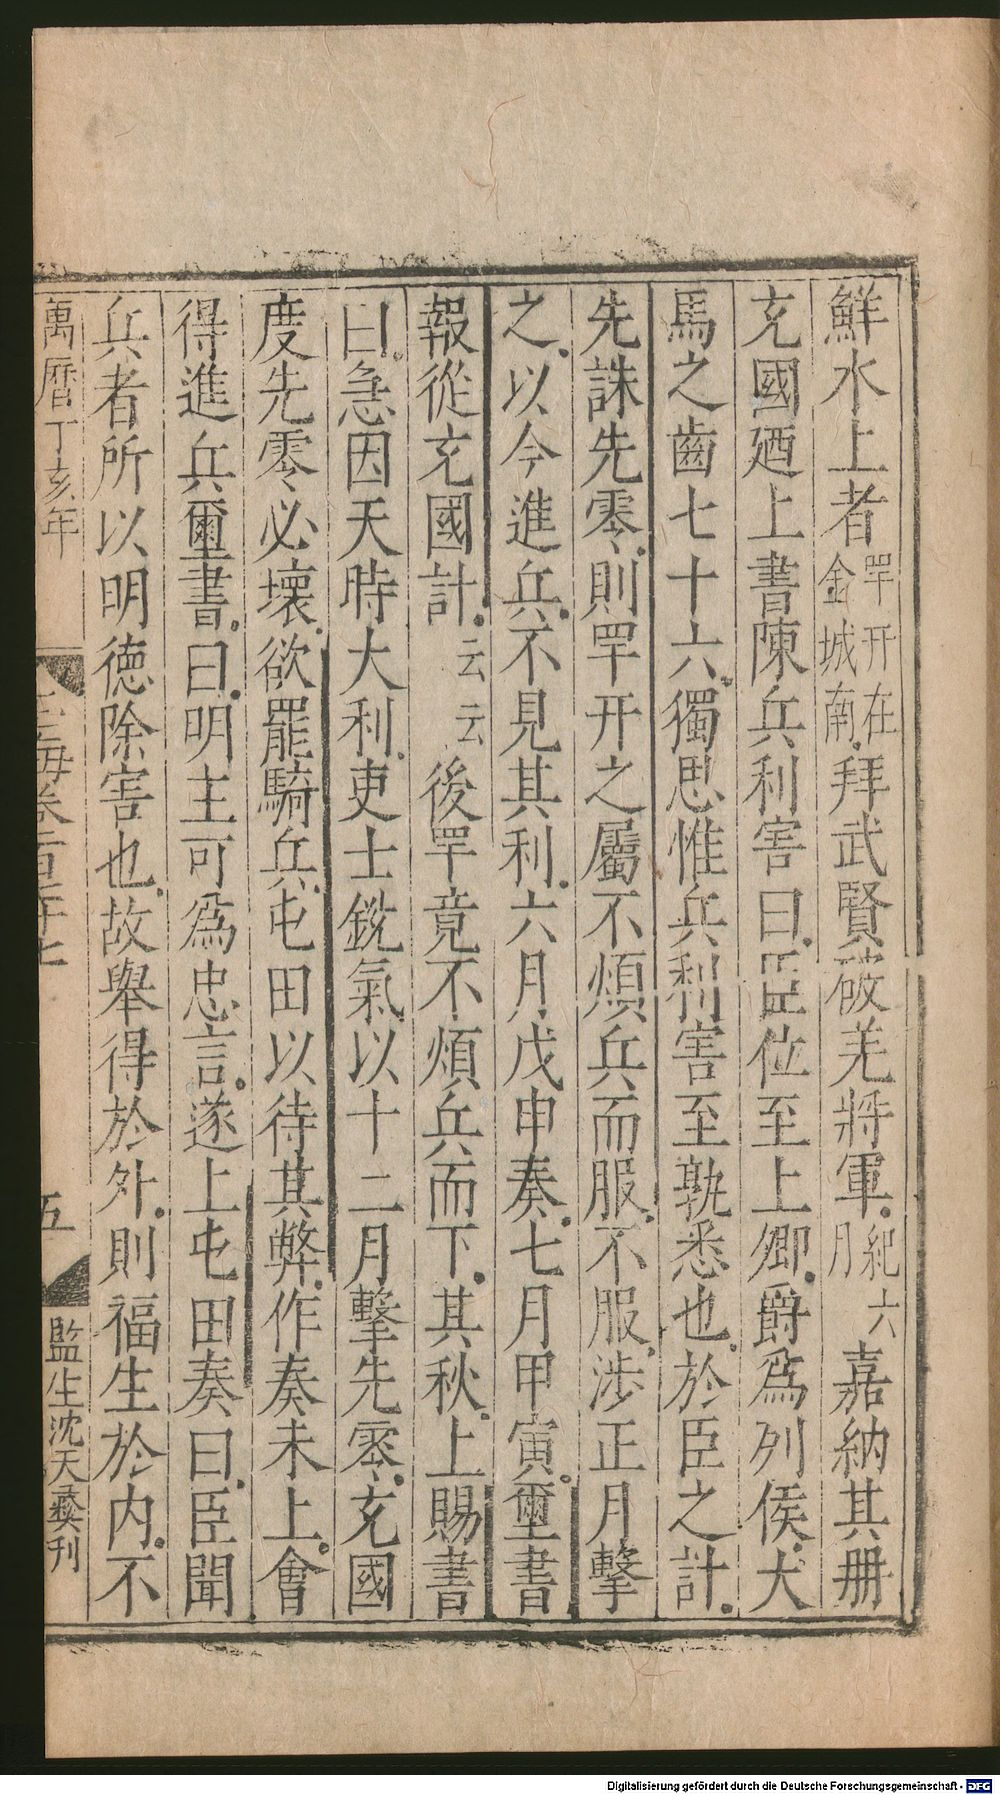 鮮水上者罕幵在金城南拜武賢破羌將軍紀六月嘉納其册
充國廼上書陳兵利害曰臣位至上卿爵爲列侯犬
馬之齒七十六獨思惟兵利害至孰悉也於臣之計
先誅先零則罕幵之屬不煩兵而服不服涉正月擊
之以今進兵不見其利六月戊申奏七月甲寅璽書
報從充國計云云後罕竟不煩兵而下其秋上賜書
曰急因天時大利吏士銳氣以十二月擊先零充國
度先零必壞欲罷騎兵屯田以待其弊作奏未上會
得進兵璽書曰明主可爲忠言遂上屯田奏曰臣聞
兵者所以明德除害也故舉得於外則福生於内不
萬曆丁亥年
玉海卷一百三十七
五
監生沈天彝刊
Digitalisierung gefördert durch die Deutsche Forschungsgemeinschaft - DFG